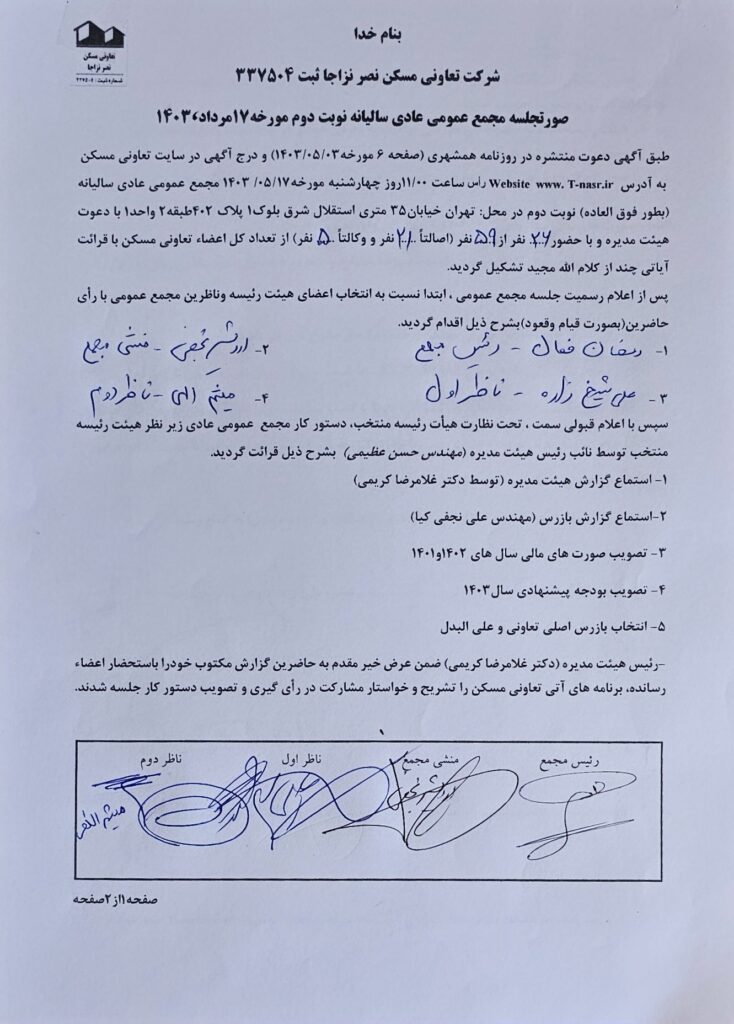 بنام خدا
تعاونی مسکن
نصر نزاجا
شماره ثبت : ۳۳۷۵۰۴
شرکت تعاونی مسکن نصر نزاجا ثبت ۳۳۷۵۰۴
صورتجلسه مجمع عمومی عادی سالیانه نوبت دوم مورخه۱۷مرداد۱۴۰۳،
طبق آگهی دعوت منتشره در روزنامه همشهری (صفحه ۶ مورخه۱۴۰۳/۰۵/۰۳) و درج آگهی در سایت تعاونی مسکن
به آدرس Website www. T-nasr.ir رأس ساعت ۱۱/۰۰روز چهارشنبه مورخه۱۷/ ۰۵/ ۱۴۰۳ مجمع عمومی عادی سالیانه
(بطور فوق العاده) نوبت دوم در محل: تهران خیابان۳۵ متری استقلال شرق بلوک۱ پلاک ۴۰۲طبقه۲ واحد۱ با دعوت
هیئت مدیره و با حضور نفر از نفر (اصالتاً نفر و وکالتاً نفر) از تعداد کل اعضاء تعاونی مسکن با قرائت
آیاتی چند از کلام الله مجید تشکیل گردید.
پس از اعلام رسمیت جلسه مجمع عمومی ، ابتدا نسبت به انتخاب اعضای هیئت رئیسه وناظرین مجمع عمومی با رأی
حاضرین(بصورت قیام وقعود)بشرح ذیل اقدام گردید.
۱- رمضان فعال - رئیس مجمع ۲- اردشیر نجفی - منشی مجمع
۳- علی شیخ زاده - ناظر اول ۴- میثم الهی - ناظر دوم
سپس با اعلام قبولی سمت ، تحت نظارت هیأت رئیسه منتخب، دستور کار مجمع عمومی عادی زیر نظر هیئت رئیسه
منتخب توسط نائب رئیس هیئت مدیره (مهندس حسن عظیمی) بشرح ذیل قرائت گردید.
۱- استماع گزارش هیئت مدیره (توسط دکتر غلامرضا کریمی)
۲-استماع گزارش بازرس (مهندس علی نجفی کیا)
۳- تصویب صورت های مالی سال های ۱۴۰۲و۱۴۰۱
۴- تصویب بودجه پیشنهادی سال۱۴۰۳
۵- انتخاب بازرس اصلی تعاونی و علی البدل
-رئیس هیئت مدیره (دکتر غلامرضا کریمی) ضمن عرض خیر مقدم به حاضرین گزارش مکتوب خودرا باستحضار اعضاء
رسانده، برنامه های آتی تعاونی مسکن را تشریح و خواستار مشارکت در رأی گیری و تصویب دستور کار جلسه شدند.
رئیس مجمع منشی مجمع ناظر اول ناظر دوم
صفحه۱از۲صفحه